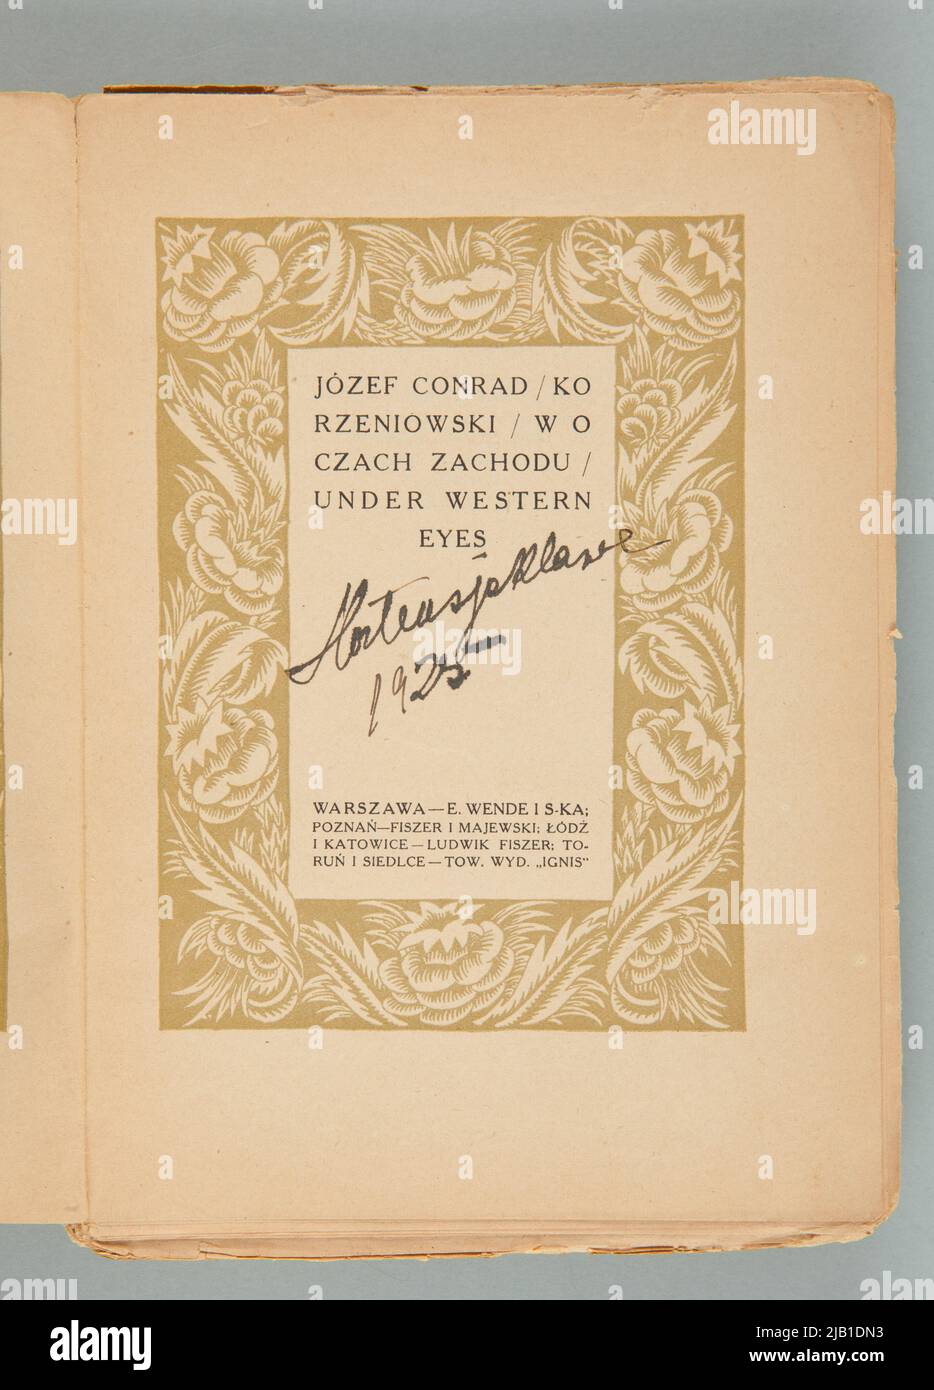 JÓZEF CONRAD / KO
RZENIOWSKI / W O
CZACH ZACHODU /
UNDER WESTERN
EYES
1925
WARSZAWA — E. WENDE I S-KA;
POZNAŃ—FISZER I MAJEWSKI; ŁÓDŹ
I KATOWICE — LUDWIK FISZER; TO-
RUŃ I SIEDLCE — TOW. WYD. „IGNIS"
alamy
alamy
Image ID: 2JB1DN3
www.alamy.com